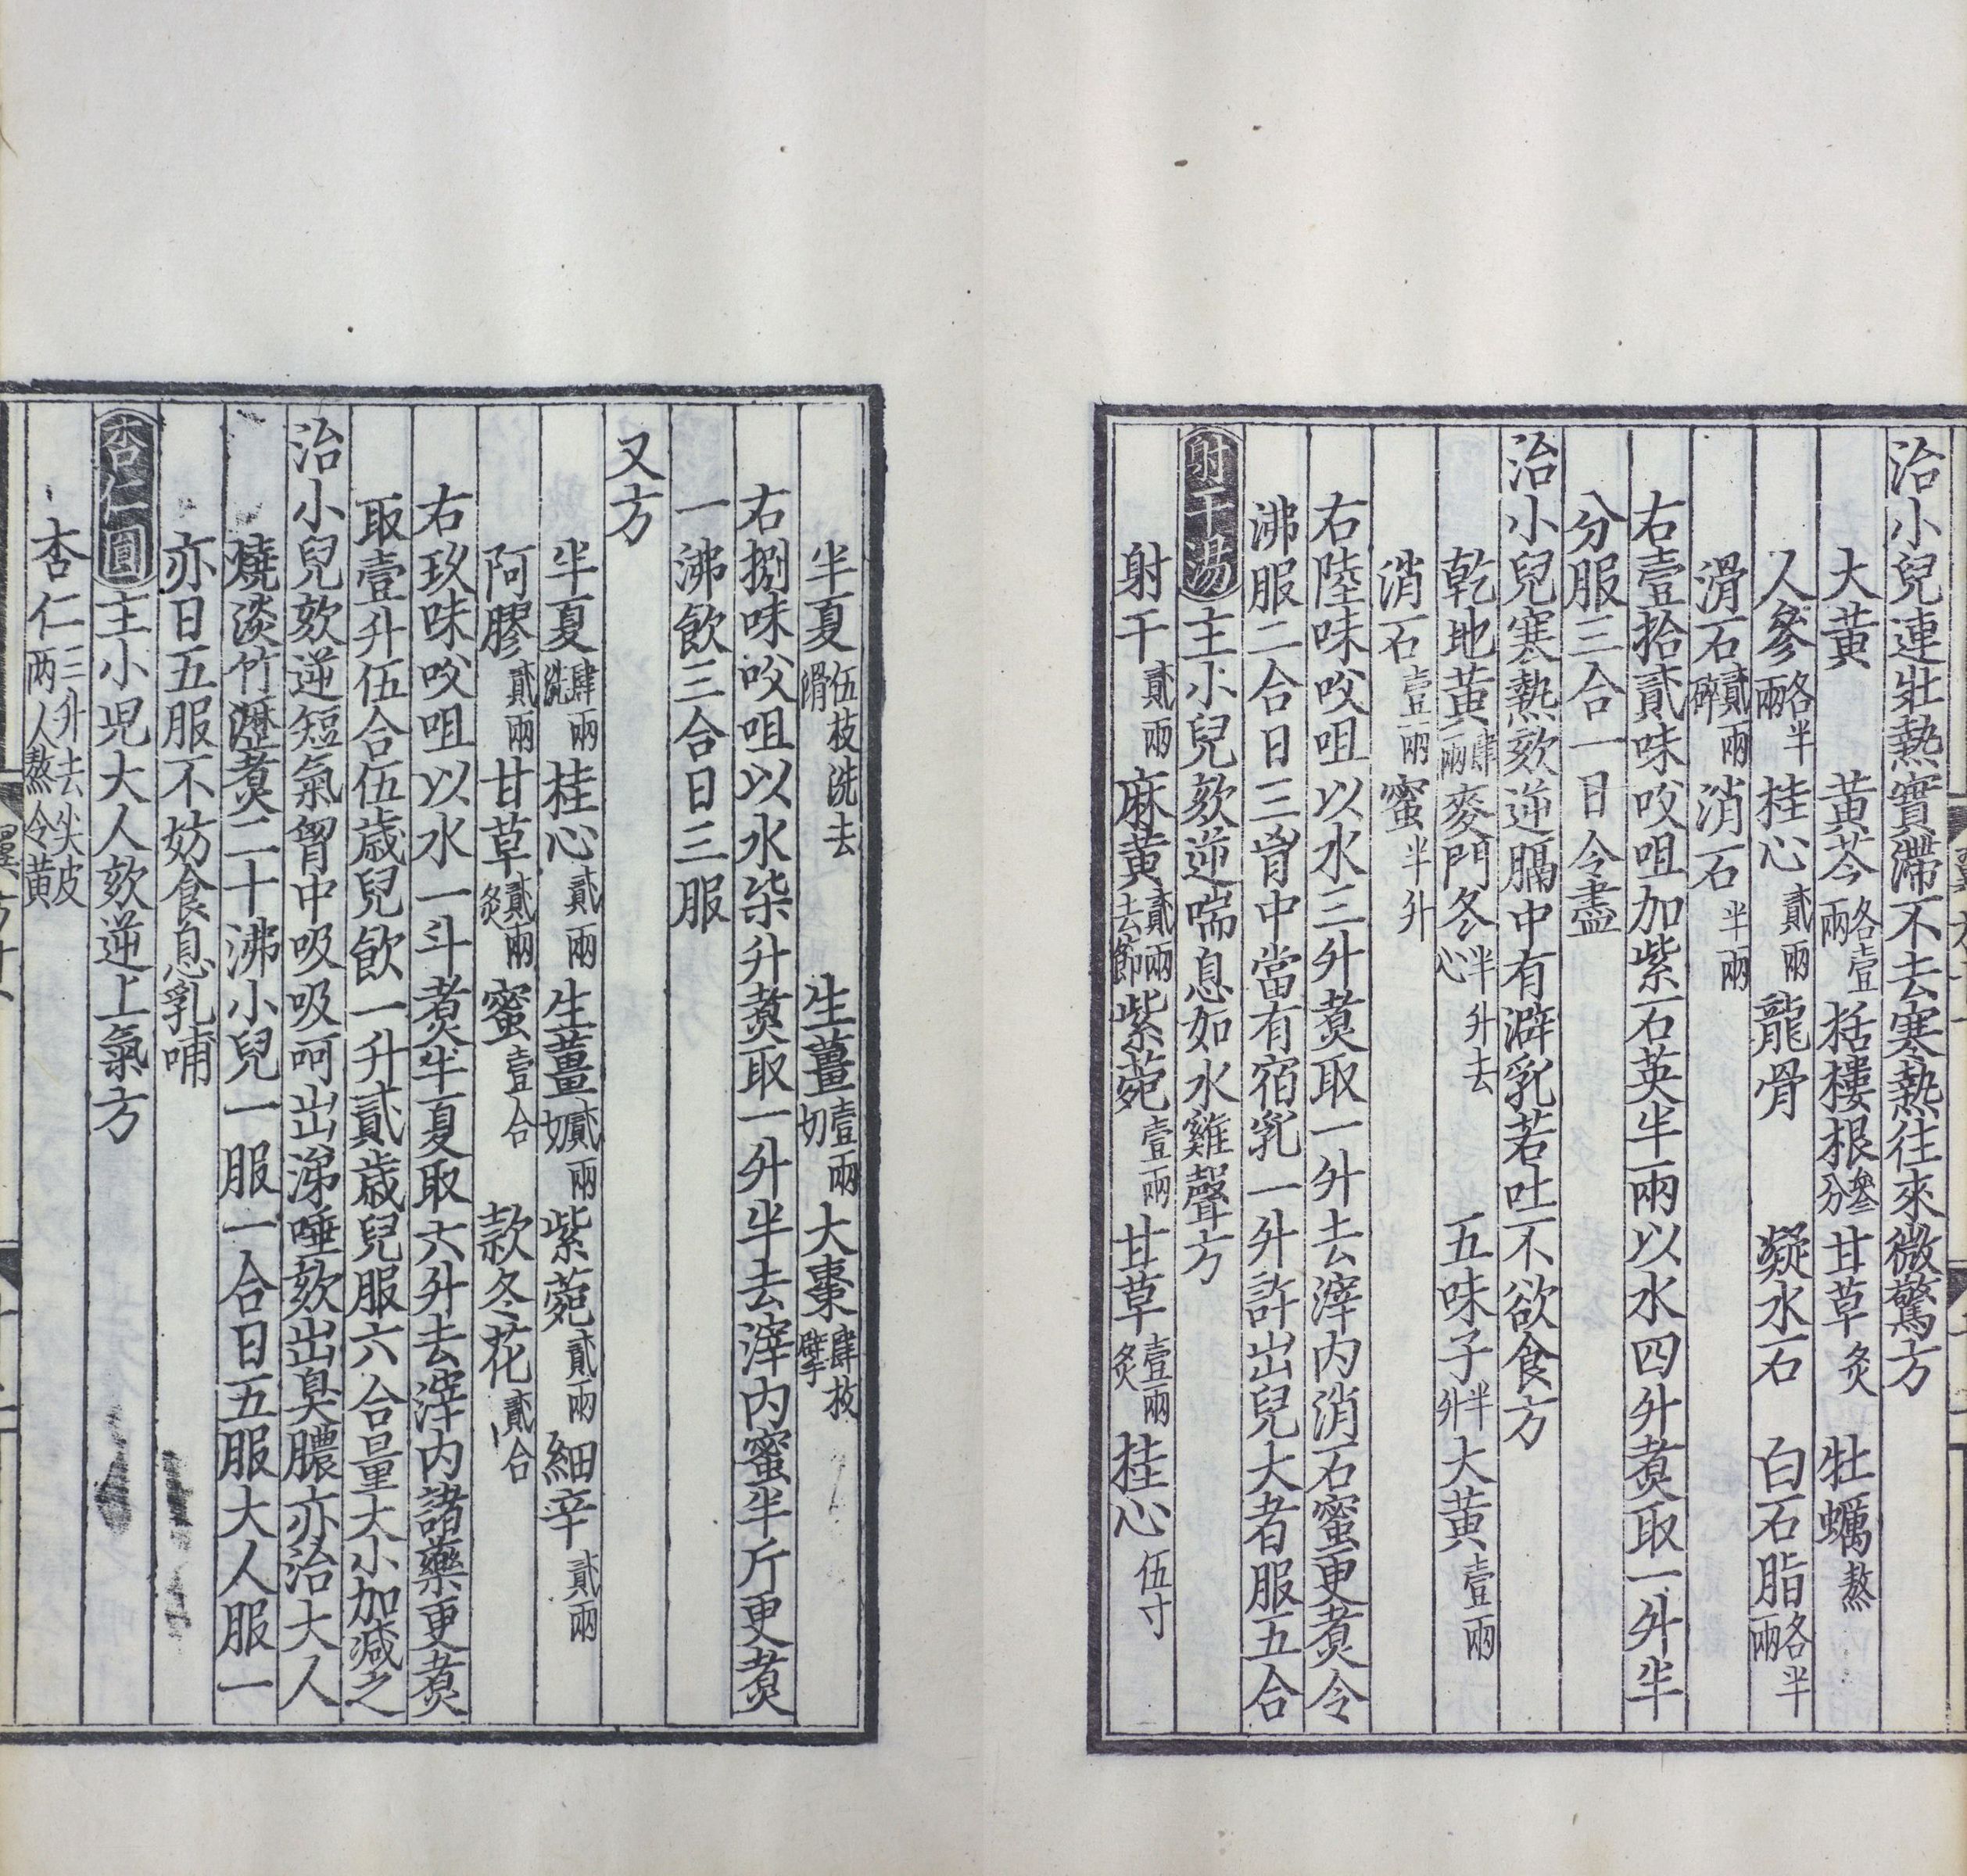 治小兒連壯熱實滯不去寒熱往來微驚方
大黃 黃芩各壹兩 栝樓根參分 甘草炙 牡蠣熬
人參各半兩 桂心貳兩 龍骨 凝水石 白石脂各半兩
滑石貳兩碎 消石半兩
右壹拾貳味㕮咀加紫石英半兩以水四升煑取一升半
分服三合一日令盡
治小兒寒熱欬逆膈中有澼乳若吐不欲食方
乾地黃肆兩 麥門冬半升去心 五味子半升 大黃壹兩
消石壹兩 蜜半升
右陸味㕮咀以水三升煑取一升去滓内消石蜜更煑令
沸服二合日三胷中當有宿乳一升許出兒大者服五合
射干湯主小兒欬逆喘息如水雞聲方
射干貳兩 麻黃貳兩去節 紫菀壹兩 甘草壹兩炙 桂心伍寸
半夏伍枝洗去滑 生薑壹兩切 大棗肆枚擘
右捌味㕮咀以水柒升煑取一升半去滓内蜜半斤更煑
一沸飲三合日三服
又方
半夏肆兩洗 桂心貳兩 生薑貳兩切 紫菀貳兩 細辛貳兩
阿膠貳兩 甘草貳兩炙 蜜壹合 款冬花貳合
右玖味㕮咀以水一斗煑半夏取六升去滓内諸藥更煑
取壹升伍合伍歲兒飲一升貳歲兒服六合量大小加減之
治小兒欬逆短氣胷中吸吸呵出涕唾欬出臭膿亦治大人
燒淡竹瀝煑二十沸小兒一服一合日五服大人服一
亦日五服不妨食息乳哺
杏仁圓主小児大人欬逆上氣方
杏仁三升去尖皮兩人熬令黃